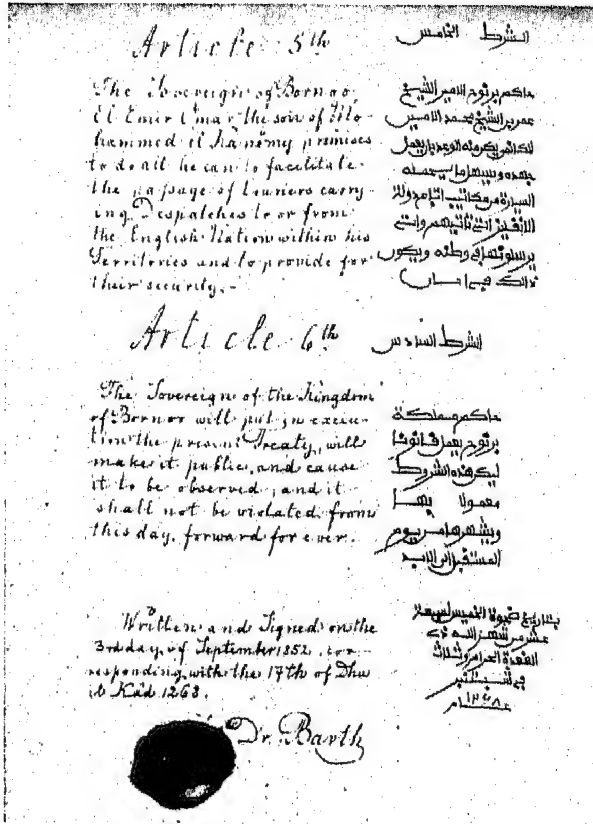 Article 5th
The Sovereign of Bornoo,
El Emir Omar the son of Mo-
hammed el Kanemy promises
to do all he can to facilitate
the passage of Couriers carry-
ing Despatches to or from
the English Nation within his
Territories and to provide for
their security.-
الشرط الخامس
حاكم برنوح الامير الشيخ
عمر بن الشيخ محمد الامين
الوعد بان يعمل
جهده ويسهل ما يحمله
السيارة من مكاتيب
الانقليز التي تأتيهم والتي
يرسلونها في وطنه ويكون
ذالك في امان
Article 6th
The Sovereign of the Kingdom
of Bornoo will put in execu-
tion the present Treaty, will
make it public, and cause
it to be observed, and it
shall not be violated from
this day forward for ever.
الشرط السادس
حاكم مملكة
برنوح يعمل قانونا
ليكن هذه الشروط
معمولا بها
ويشهرها من يوم
المستقبل الى الابد
Written and Signed on the
3rd day of September 1852, cor-
responding with the 17th of Dhu
el Kad 1268.
بتاريخ ضحوة الخميس لسبعة
عشر من شهر الله ذي
القعدة الحرام وثلاث
في شتنبر
١٢٦٨
عام
Dr. Barth